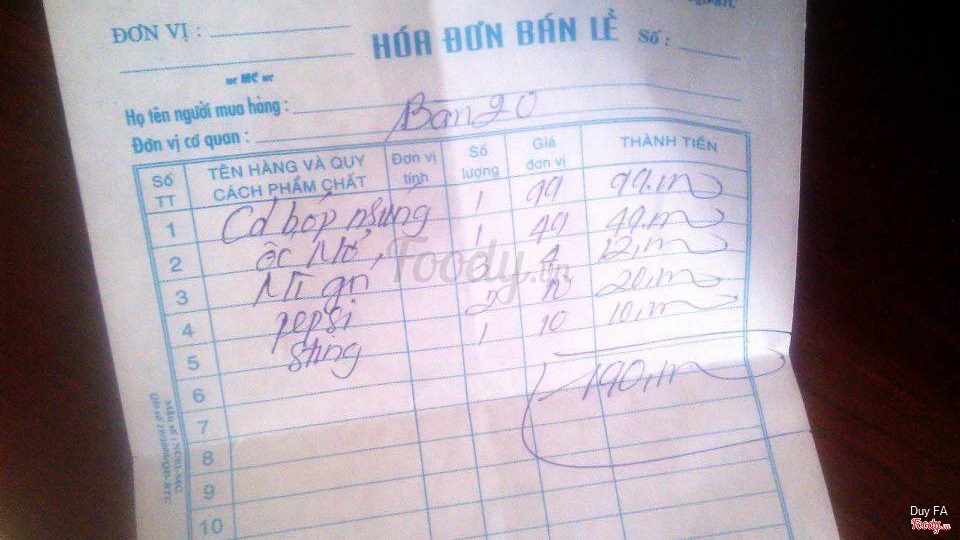 ĐƠN VỊ :
HÓA ĐƠN BÁN LẺ Số :
MC
Họ tên người mua hàng :
Đơn vị cơ quan : Bàn 20
Số TT TÊN HÀNG VÀ QUY CÁCH PHẨM CHẤT Đơn vị tính Số lượng Giá đơn vị THÀNH TIỀN
1 Cá bóp nhúng 1 99 99.m
2 ốc Mỡ 1 49 49.m
3 Mì gói 3 4 12.m
4 pepsi 2 10 20.m
5 sting 1 10 10.m
6 190.m
7
8
9
10
Foody.vn
Duy FA
Foody.vn